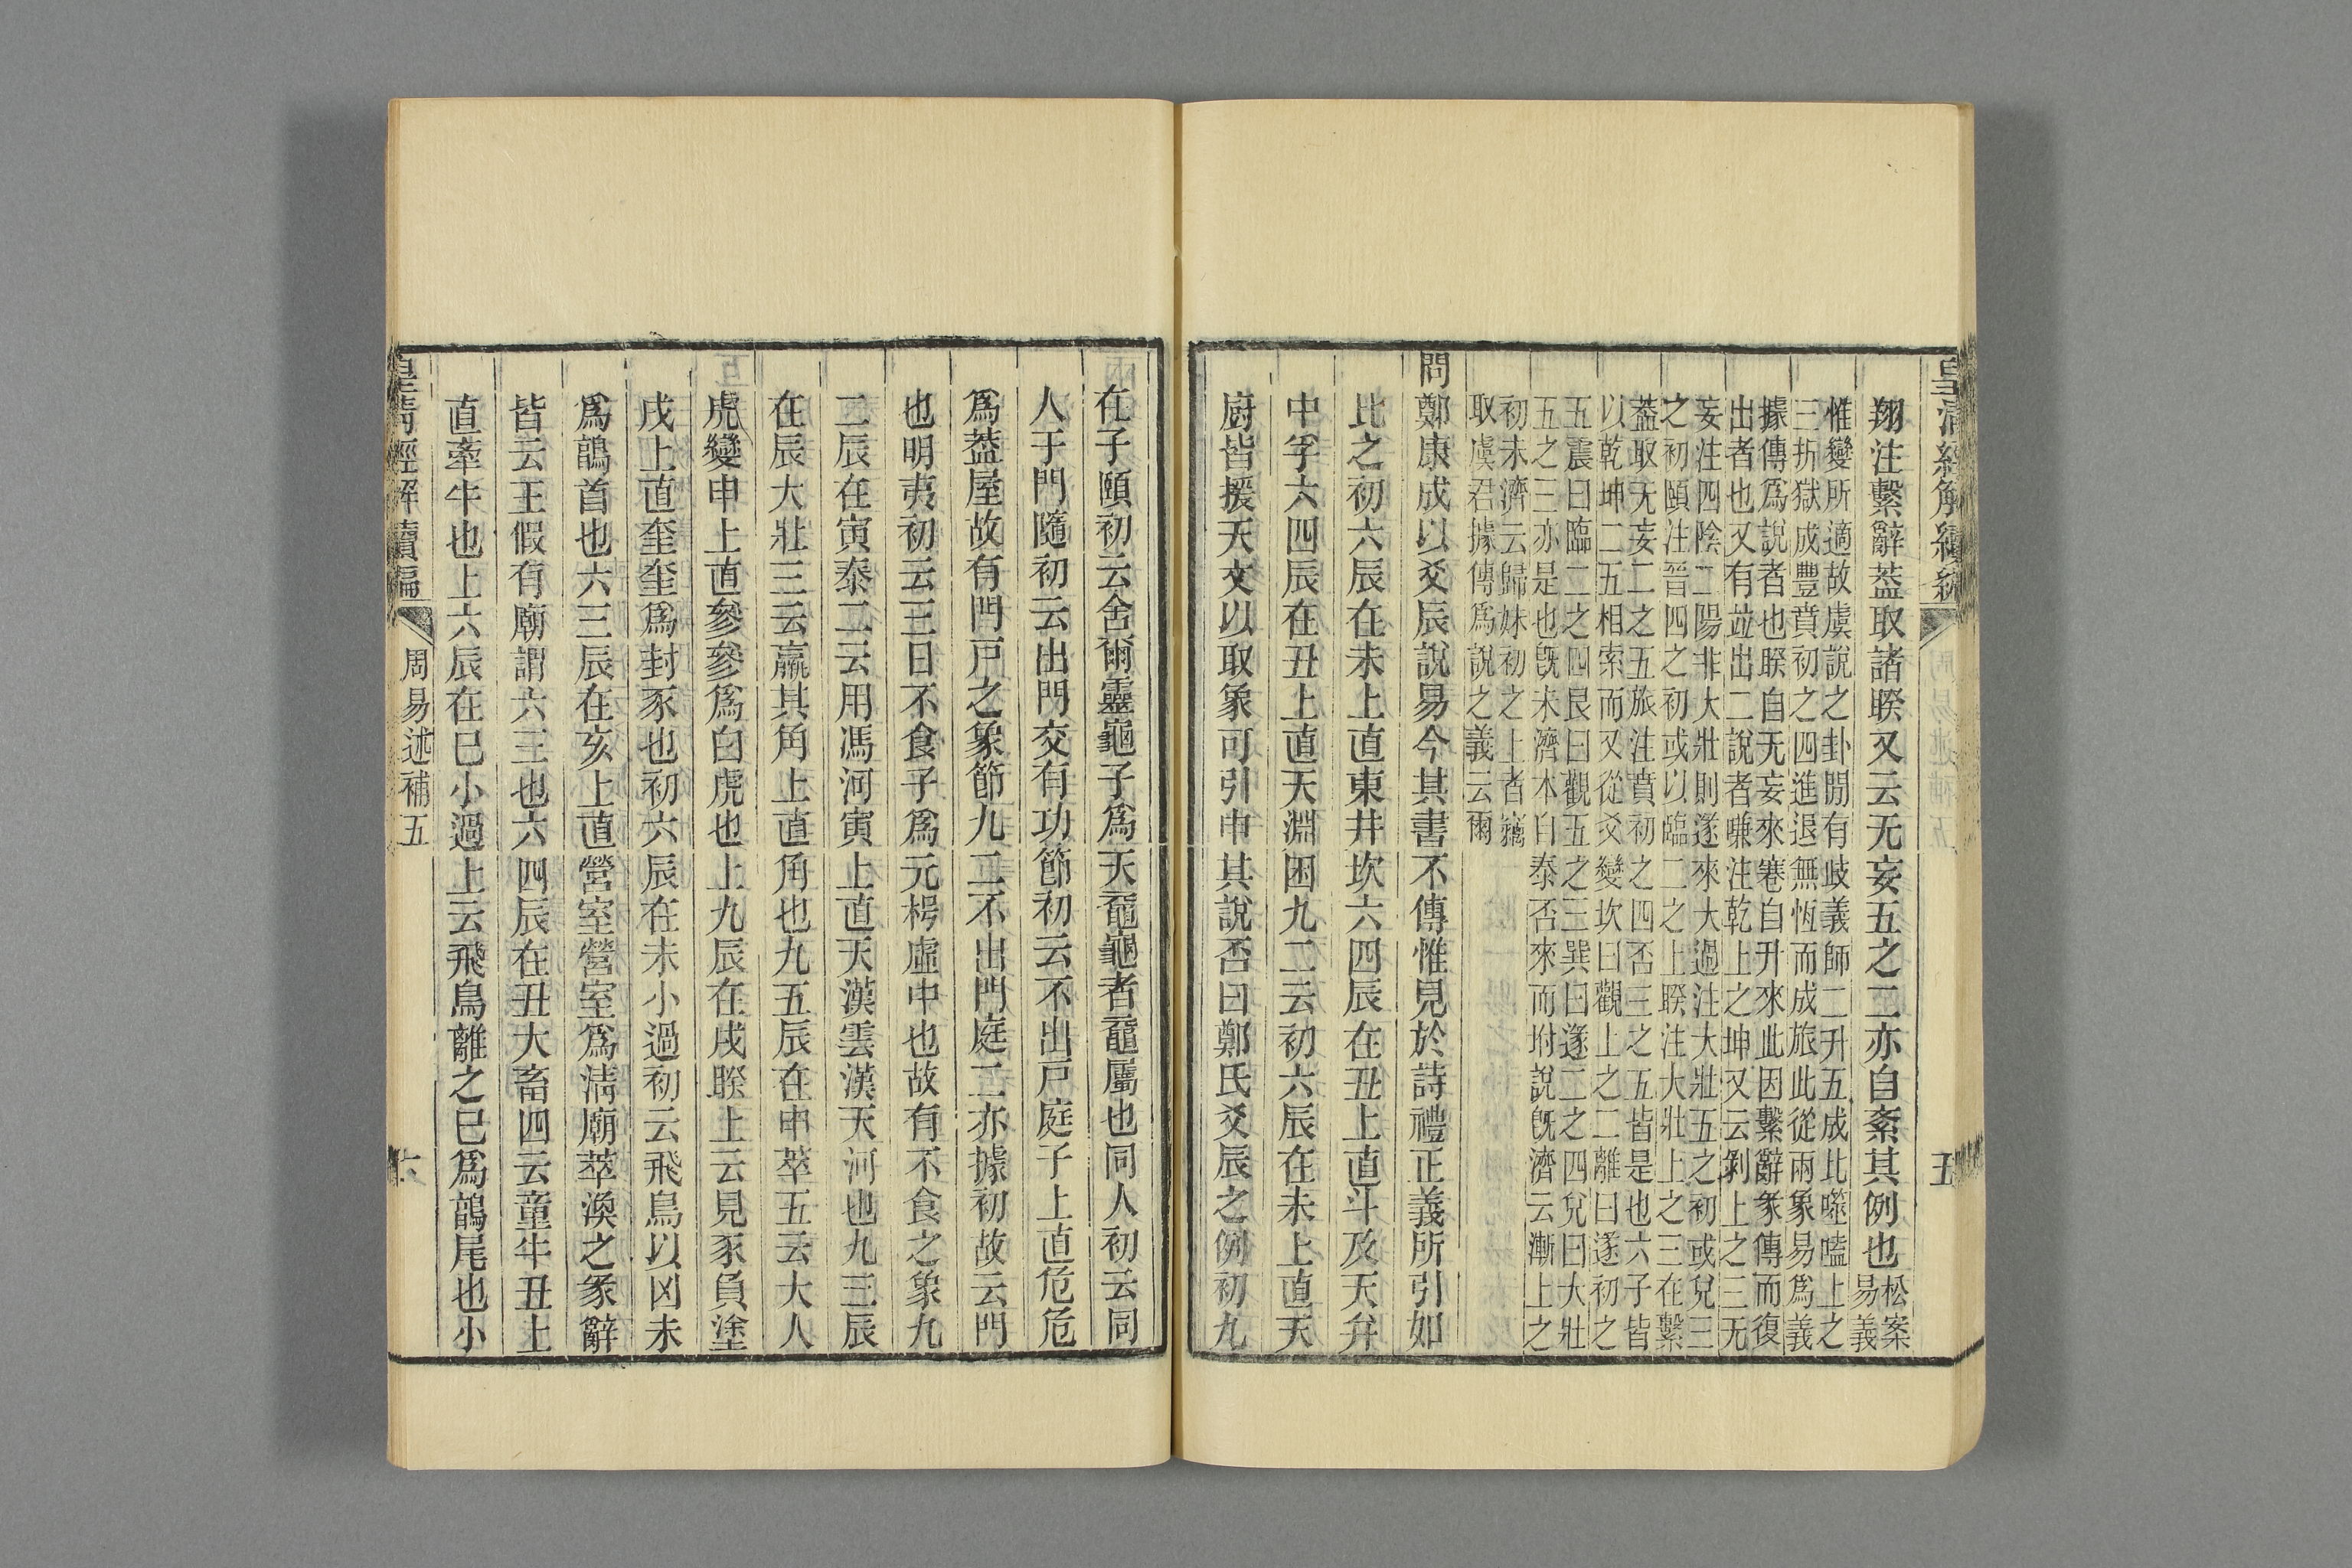 皇清經解續編 五
翔注繫辭葢取諸睽又云无妄五之二亦自紊其例也松案易義
惟變所適故虞說之卦閒有歧義師二升五成比噬嗑上之
三折獄成豐賁初之四進退無恆而成旅此從兩象易爲義
據傳爲說者也睽自无妄來蹇自升來此因繫辭彖傳而復
出者也又有竝出二說者嗛注乾上之坤又云剝上之三无
妄注四陰二陽非大壯則遂來大過注大壯五之初或兌三
之初頤注晉四之初或以臨二之上睽注大壯上之三在繫
葢取无妄二之五旅注賁初之四否三之五皆是也六子皆
以乾坤二五相索而又從爻變坎曰觀上之二離曰遂初之
五震曰臨二之四艮曰觀五之三巽曰遂二之四兌曰大壯
五之三亦是也旣未濟本自泰否來而坿說旣濟云漸上之
初未濟云歸妹初之上者竊
取虞君據傳爲說之義云爾
問鄭康成以爻辰說易今其書不傳惟見於詩禮正義所引如
比之初六辰在未上直東井坎六四辰在丑上直斗及天弁
中孚六四辰在丑上直天淵困九二云初六辰在未上直天
廚皆援天文以取象可引申其說否曰鄭氏爻辰之例初九
在子頤初云舍爾靈龜子爲天黿龜者黿屬也同人初云同
人于門隨初云出門交有功節初云不出戸庭子上直危危
爲葢屋故有門戸之象節九二不出門庭二亦據初故云門
也明夷初云三日不食子爲元枵虛中也故有不食之象九
二辰在寅泰二云用馮河寅上直天漢雲漢天河也九三辰
在辰大壯三云羸其角上直角也九五辰在申萃五云大人
虎變申上直參參爲白虎也上九辰在戌睽上云見豕負塗
戌上直奎奎爲封豕也初六辰在未小過初云飛鳥以凶未
爲鶉首也六三辰在亥上直營室營室爲淸廟萃渙之彖辭
皆云王假有廟謂六三也六四辰在丑大畜四云童牛丑上
直牽牛也上六辰在巳小過上云飛鳥離之巳爲鶉尾也小
皇清經解續編 周易述補五 六